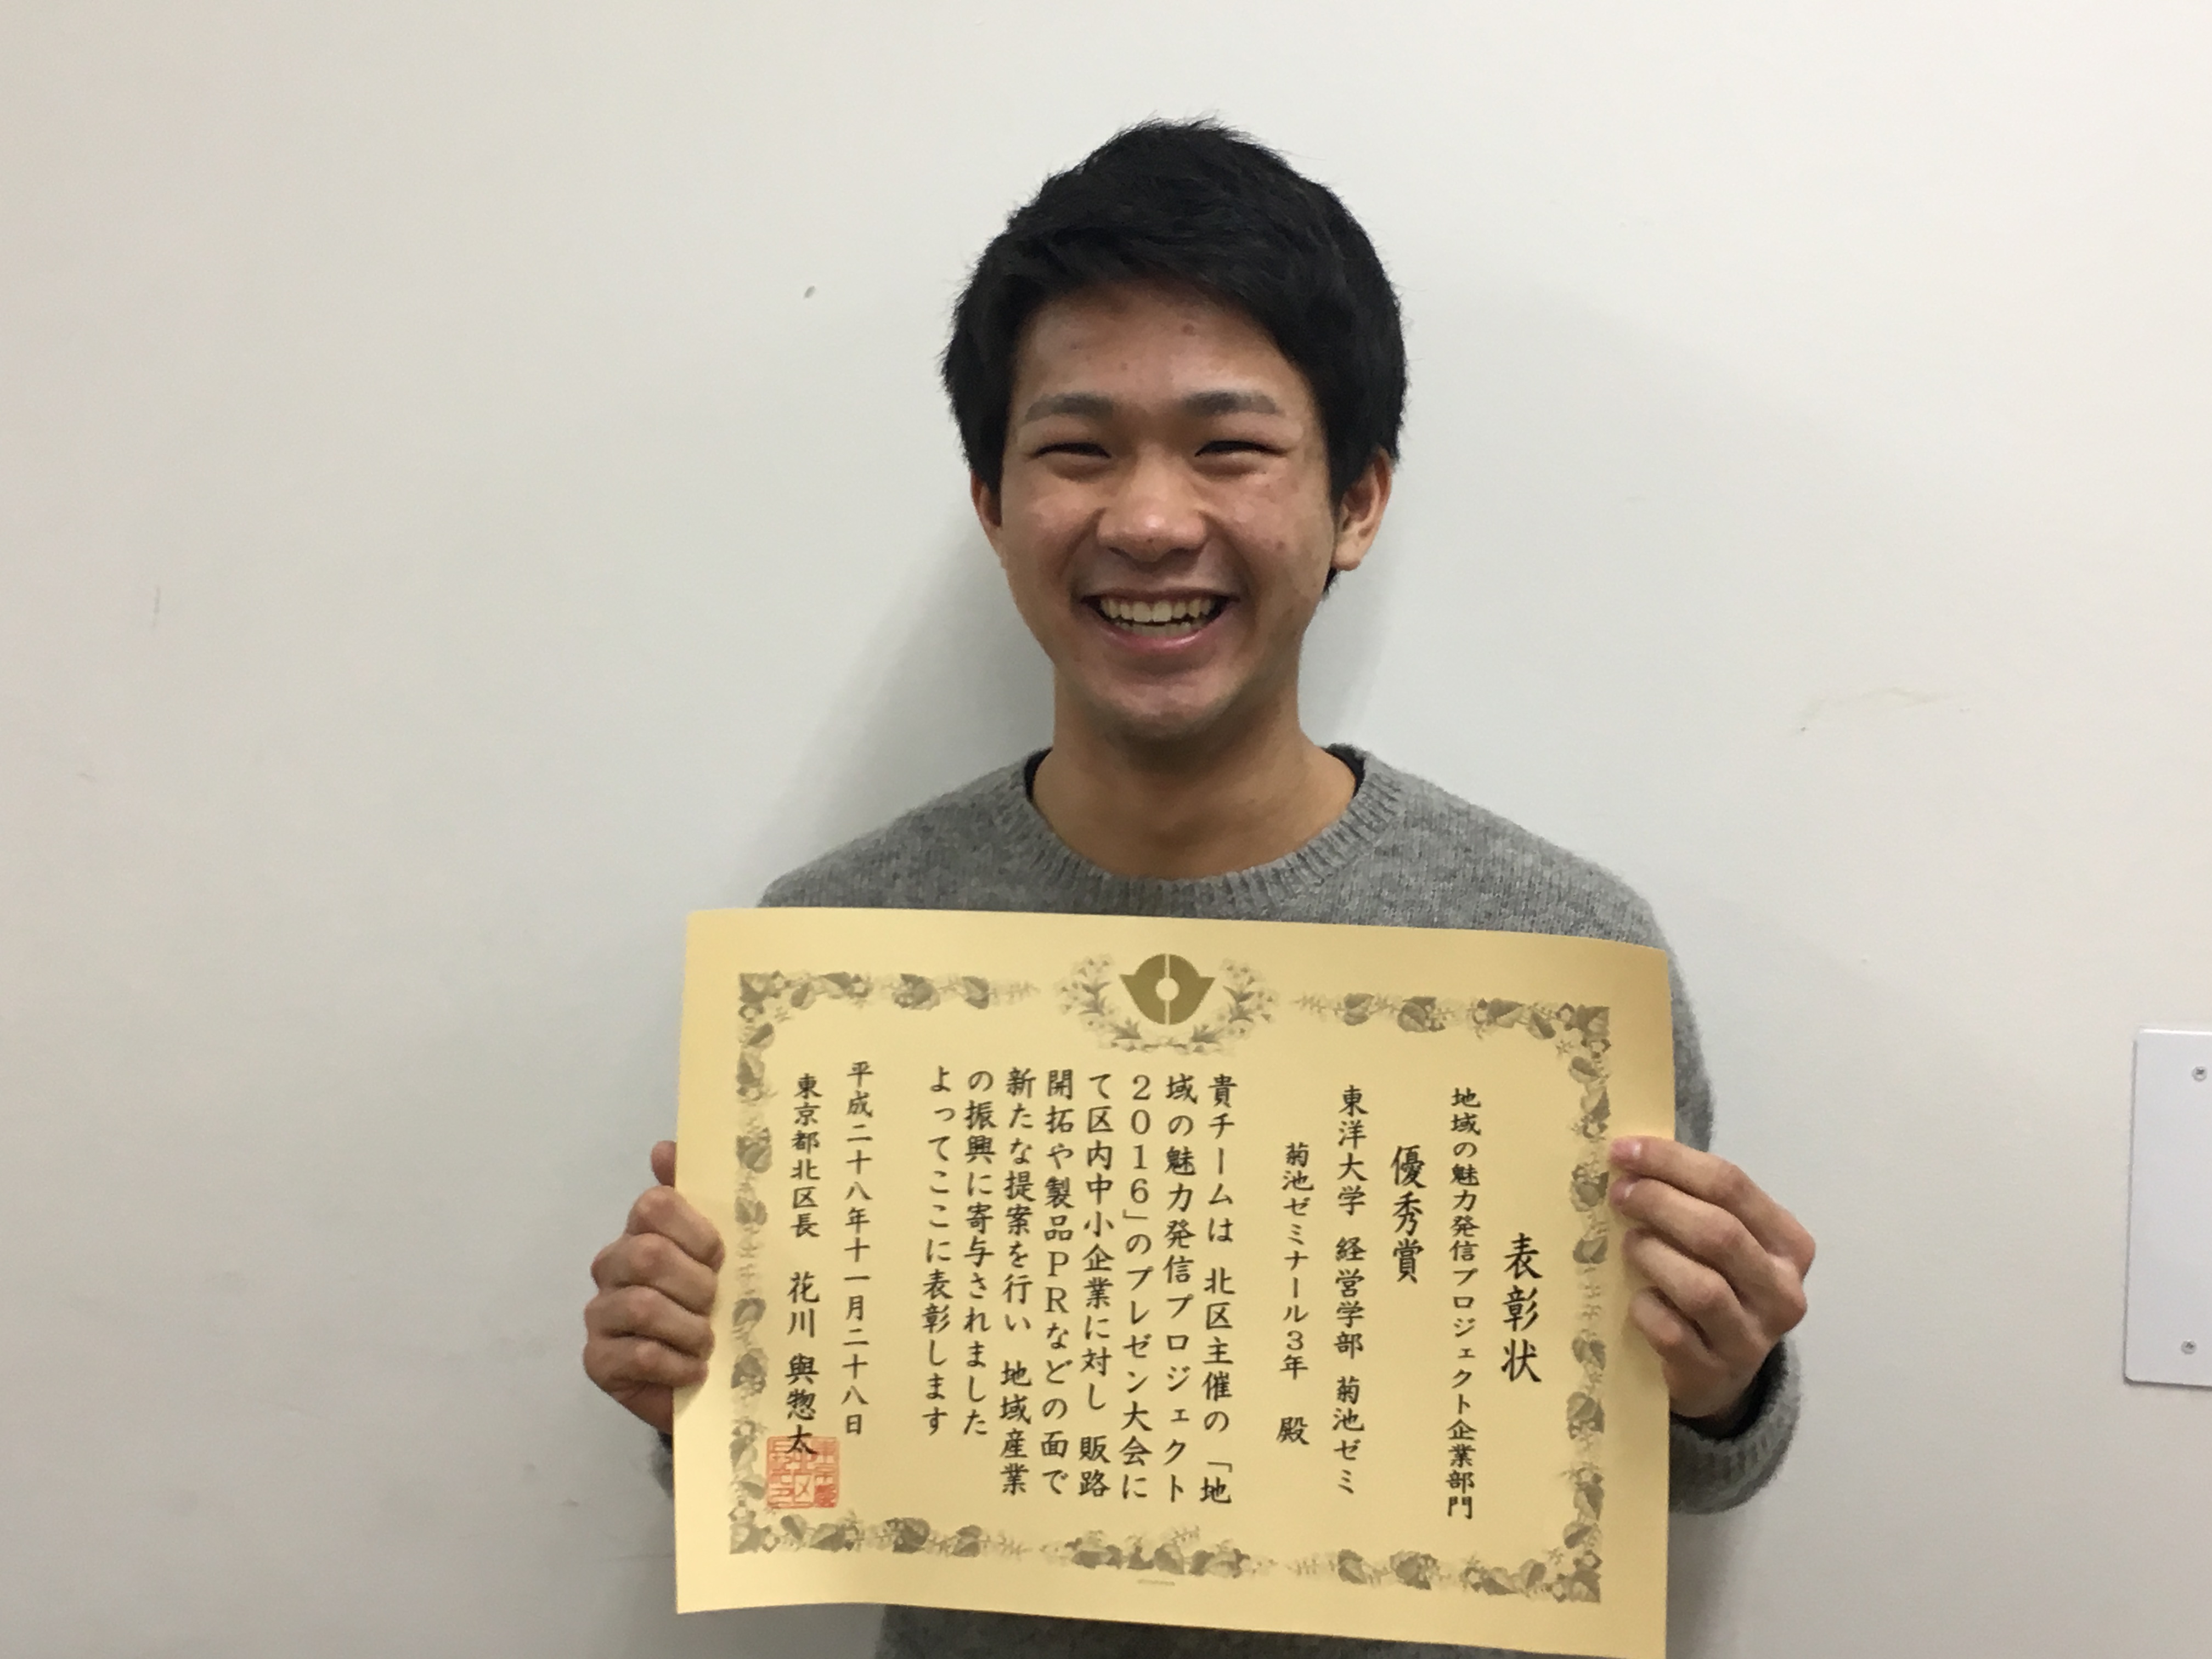 表彰状
地域の魅力発信プロジェクト企業部門
優秀賞
東洋大学 経営学部 菊池ゼミ
菊池ゼミナール3年 殿
貴チームは 北区主催の「地
域の魅力発信プロジェクト
2016」のプレゼン大会に
て区内中小企業に対し 販路
開拓や製品PRなどの面で
新たな提案を行い 地域産業
の振興に寄与されました
よってここに表彰します
平成二十八年十一月二十八日
東京都北区長 花川 與惣太